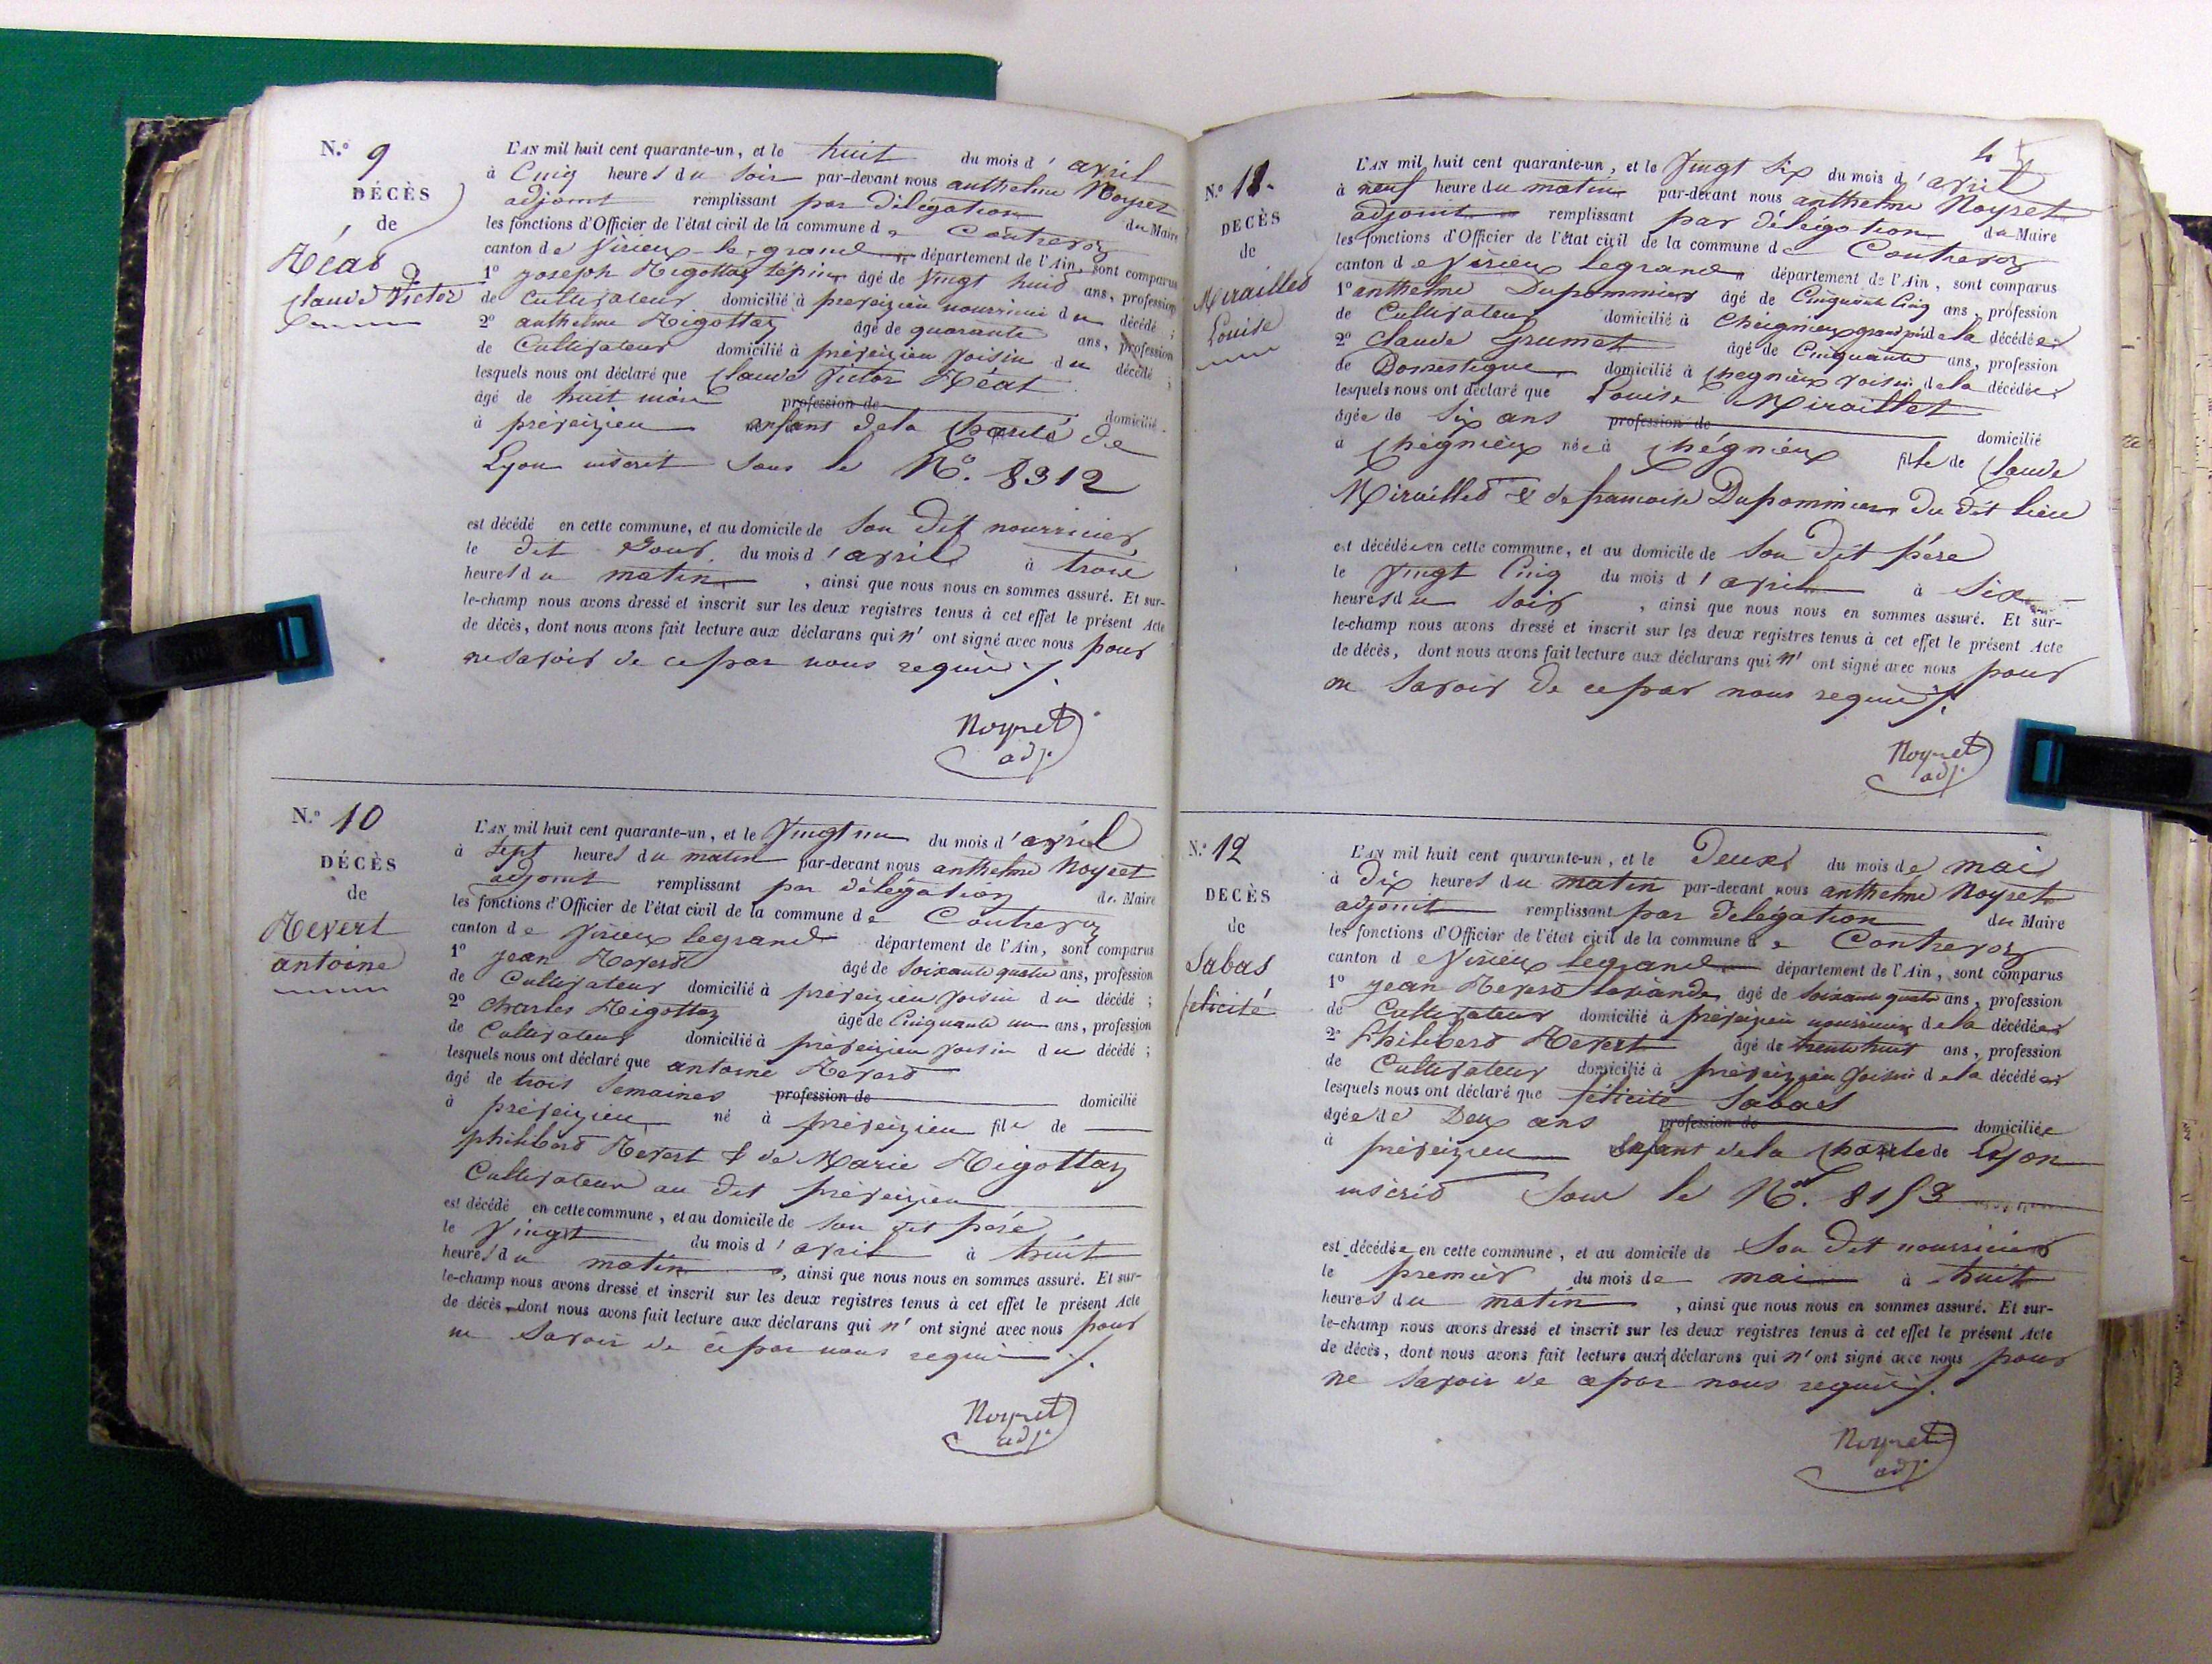 N.° 9
DÉCÈS
de
Réat
Claude Victor
L'AN mil huit cent quarante-un, et le huit du mois d'avril
à Cinq heures du soir par-devant nous anthelme Noyret
adjoint remplissant par délégation du Maire
les fonctions d'Officier de l'état civil de la commune de Contrevoz
canton de Virieu-le-grand département de l'Ain, sont comparus
1° joseph Rigottaz pépin âgé de vingt huit ans, profession
de Cultivateur domicilié à preveizieu nourricier du décédé ;
2° anthelme Rigottaz âgé de quarante ans, profession
de Cultivateur domicilié à preveizieu voisin du décédé ;
lesquels nous ont déclaré que Claude Victor Réat
âgé de huit mois profession de domicilié
à préveizieu enfant de la Charité de
Lyon inscrit sous le N°. 8312
est décédé en cette commune, et au domicile de son dit nourricier
le dit Jour du mois d'avril à trois
heures du matin, ainsi que nous nous en sommes assuré. Et sur-
le-champ nous avons dressé et inscrit sur les deux registres tenus à cet effet le présent Acte
de décès, dont nous avons fait lecture aux déclarans qui n'ont signé avec nous pour
ne savoir de ce par nous requis ./.
Noyret
adj.
N.° 10
DÉCÈS
de
Revert
antoine
L'AN mil huit cent quarante-un, et le Vingt un du mois d'avril
à sept heures du matin par-devant nous anthelme Noyret
adjoint remplissant par délégation du Maire
les fonctions d'Officier de l'état civil de la commune de Contrevoz
canton de Virieu legrand département de l'Ain, sont comparus
1° jean Reverd âgé de soixante quatre ans, profession
de Cultivateur domicilié à préveizieu voisin du décédé ;
2° charles Rigottaz âgé de Cinquante un ans, profession
de Cultivateur domicilié à préveizieu voisin du décédé ;
lesquels nous ont déclaré que antoine Reverd
âgé de trois Semaines profession de domicilié
à préveizieu né à préveizieu fils de
philibert Revert & de Marie Rigottaz
Cultivateur au dit préveizieu
est décédé en cette commune, et au domicile de son dit père
le Vingt du mois d'avril à huit
heures du matin, ainsi que nous nous en sommes assuré. Et sur-
le-champ nous avons dressé et inscrit sur les deux registres tenus à cet effet le présent Acte
de décès, dont nous avons fait lecture aux déclarans qui n'ont signé avec nous pour
ne Savoir de ce par nous requis ./.
Noyret
adj.
4
N.° 11.
DÉCÈS
de
Miraillet
Louise
L'AN mil huit cent quarante-un, et le Vingt Six du mois d'avril
à neuf heure du matin par-devant nous anthelme Noyret
adjoint remplissant par délégation du Maire
les fonctions d'Officier de l'état civil de la commune de Contrevoz
canton de Virieu legrand département de l'Ain, sont comparus
1° anthelme Dupommier âgé de Cinquante Cinq ans, profession
de Cultivateur domicilié à Cheignieu grand père de la décédée
2° Claude Grumet âgé de Cinquante ans, profession
de Domestique domicilié à Chegnieu voisin de la décédée
lesquels nous ont déclaré que Louise Miraillet
âgée de Six ans profession de domicilié
à Chégnieu née à Chégnieu fille de Claude
Miraillet & de francoise Dupommier Du dit lieu
est décédée en cette commune, et au domicile de Son dit père
le Vingt Cinq du mois d'avril à Six
heures du soir, ainsi que nous nous en sommes assuré. Et sur-
le-champ nous avons dressé et inscrit sur les deux registres tenus à cet effet le présent Acte
de décès, dont nous avons fait lecture aux déclarans qui n'ont signé avec nous pour
ne Savoir de ce par nous requis ./.
Noyret
adj.
N.° 12
DÉCÈS
de
Sabas
félicité
L'AN mil huit cent quarante-un, et le Deux du mois de mai
à Dix heures du matin par-devant nous anthelme Noyret
adjoint remplissant par Delégation du Maire
les fonctions d'Officier de l'état civil de la commune de Contrevoz
canton de Virieu legrand département de l'Ain, sont comparus
1° jean Reverd âgé de soixante quatre ans, profession
de Cultivateur domicilié à préveizieu nourricier de la décédée
2° Philibert Revert âgé de trente huit ans, profession
de Cultivateur domicilié à préveizieu Voisin de la décédée
lesquels nous ont déclaré que félicité Sabas
âgée de Deux ans profession de domiciliée
à préveizieu Enfant de la Charité de Lyon
inscrit Sous le N°. 8153
est décédée en cette commune, et au domicile de Son Dit nourricier
le premier du mois de mai à huit
heures du matin, ainsi que nous nous en sommes assuré. Et sur-
le-champ nous avons dressé et inscrit sur les deux registres tenus à cet effet le présent Acte
de décès, dont nous avons fait lecture aux déclarans qui n'ont signé avec nous pour
ne Savoir de ce par nous requis ./.
Noyret
adj.